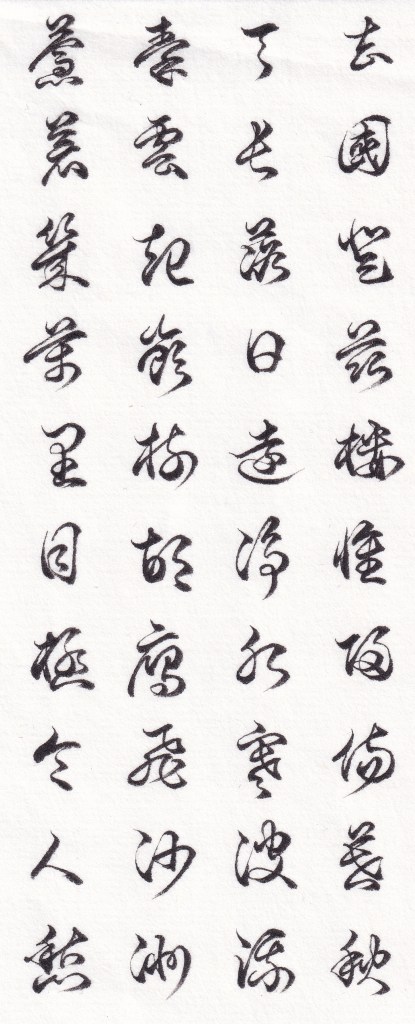 去國登茲樓懷歸傷暮秋
天長落日遠淨水寒波流
秦雲起嶺樹胡鴈飛沙洲
蒼蒼幾萬里目極令人愁